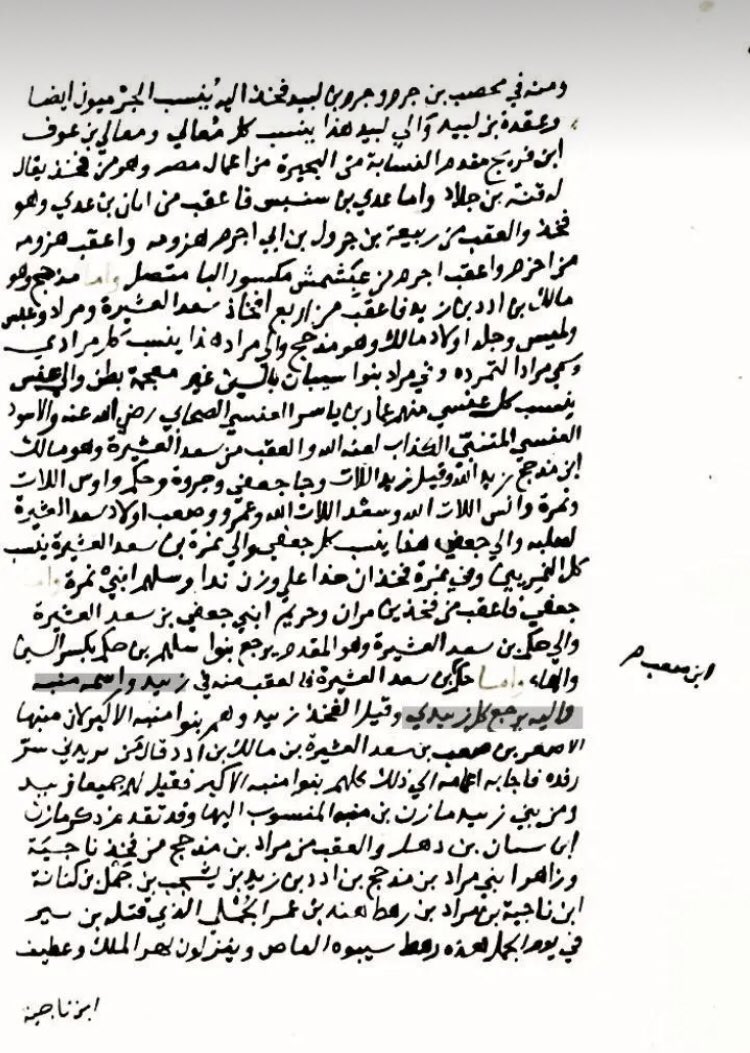 ومنه في محصب بن جرو وجرو بن لبيد فخذ اليه يُنسب الجرميون ايضا
وعقدة بن لبيد والي لبيد هذا ينسب كل مُعالي ومعالي بن عوف
ابن فريج مقدم النسابة من البحيرة من اعمال مصر وهو من فخذ يقال
له قنة بن جلاد واما عدي بن سنبس فاعقب من امان بن عدي وهو
فخذ والعقب من ربيعة بن جرول بن ابي اجرم هزومه واعقب هزومه
من اخزم واعقب اجرم من عبشمش مكسور البا متصل واما مذحج وهو
مالك بن ادد بن زيد فاعقب من اربع افخاذ سعد العشيرة ومراد وعنس
ولميس وجلد اولاد مالك وهو مذحج والي مراد هذا ينسب كل مرادي
وسمي مرادا لتمرده وفي مراد بنوا سيبان بالسين غير معجمة بطن والي عنس
ينسب كل عنسي منهم عمار بن ياسر العنسي الصحابي رضي الله عنه والاسود
العنسي المتنبي الكذاب لعنه الله والعقب من سعد العشيرة وهو مالك
ابن مذحج زيد الله وقيل زيد اللات وجا جعفي وجروة وحكم واوس اللات
ونمرة وانس اللات الله وسعد اللات الله وعمرو وصعب اولاد سعد العشيرة
لصلبه والي جعفي هذا ينسب كل جعفي والي نمرة بن سعد العشيرة ينسب
كل النمريين وفي نمرة فخذان هذا علي وزن ندا وسلهم ابني نمرة واما
جعفي فاعقب من فخذين مران وحريم ابني جعفي بن سعد العشيرة
والي حكم بن سعد العشيرة وهو المقدم يرجع بنوا سلهم بن حكم بكسر السين
والهاء واما حكم بن سعد العشيرة فالعقب منه في زبيد واسمه منبه
ابن صعب
واليه يرجع كل زبيدي وقيل الفخذ زبيد وهم بنوا منبه الاكبر لان منبها
الاصغر بن صعب بن سعد العشيرة بن مالك بن ادد قال من يريدني سرّ
رفده فاجابه اعمامه الي ذلك كلهم بنوا منبه الاكبر فقيل لهم جميعا زبيد
ومن بني زبيد مازن بن منبه المنسوب اليها وقد تقدم ذكر مازن
ابن والعقب من مراد بن مذحج من فخذ ناجية
وزاهر ابني مراد بن مذحج بن ادد بن زيد بن يشجب بن جمل بن كنانة
ابن ناجية بن مراد بن رهط هند بن عمر الجُملي الذي قتله بن
في يوم الجمل هذه رهط العاص وينزلون الملك وعطيف
ابن ناجية